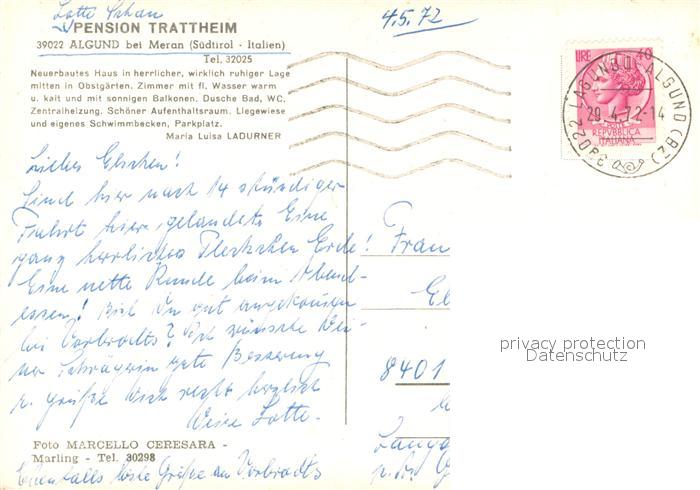 Lotte
4.5.72
PENSION TRATTHEIM
39022 ALGUND bei Meran (Südtirol - Italien)
Tel. 32025
Neuerbautes Haus in herrlicher, wirklich ruhiger Lage
mitten in Obstgärten. Zimmer mit fl. Wasser warm
u. kalt und mit sonnigen Balkonen. Dusche Bad, WC.
Zentralheizung. Schöner Aufenthaltsraum. Liegewiese
und eigenes Schwimmbecken, Parkplatz.
Maria Luisa LADURNER
LIRE 40
REPVBBLICA
ITALIANA
39022 LAGUNDO - ALGUND (BZ)
29.4.72-14
Liebes Elschen!
Sind hier nach 14 stündiger
Fahrt hier gelandet. Eine
ganz herrliches Fleckchen Erde!
Eine nette Runde beim Abend-
essen! Bist Du gut angekommen
bei Vorbrodts? Ich wünsche Dei-
ner Schwägerin gute Besserung
u. grüße Dich recht herzlich
Deine Lotte.
Frau
El
8401
privacy protection
Datenschutz
Foto MARCELLO CERESARA -
Marling - Tel. 30298
Ebenfalls liebe Grüße an Vorbrodts